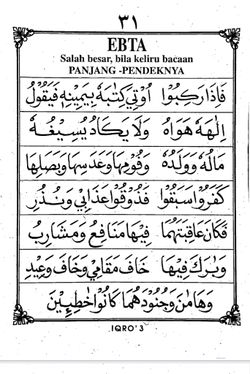 ٣١
EBTA
Salah besar, bila keliru bacaan
PANJANG -PENDEKNYA
فَإِذَا رَكِبُوْا أُوْتِيَ كِتٰبَهٗ بِيَمِيْنِهٖ فَيَقُوْلُ
إِلٰهَهٗ هَوَاهُ وَلَا يَكَادُ يُسِيْغُهٗ
مَالُهٗ وَوَلَدُهٗ وَفُوْمِهَا وَعَدَسِهَا وَبَصَلِهَا
كَفَرُوْا سَبَقُوْا فَذُوْقُوْا عَذَابِيْ وَنُذُرِ
فَكَانَ عَاقِبَتَهُمَا فِيْهَا مَنَافِعُ وَمَشَارِبُ
وَبٰرَكَ فِيْهَا خَافَ مَقَامِيْ وَخَافَ وَعِيْدِ
وَهَامٰنَ وَجُنُوْدَهُمَا كَانُوْا خٰطِئِيْنَ
IQRO' 3